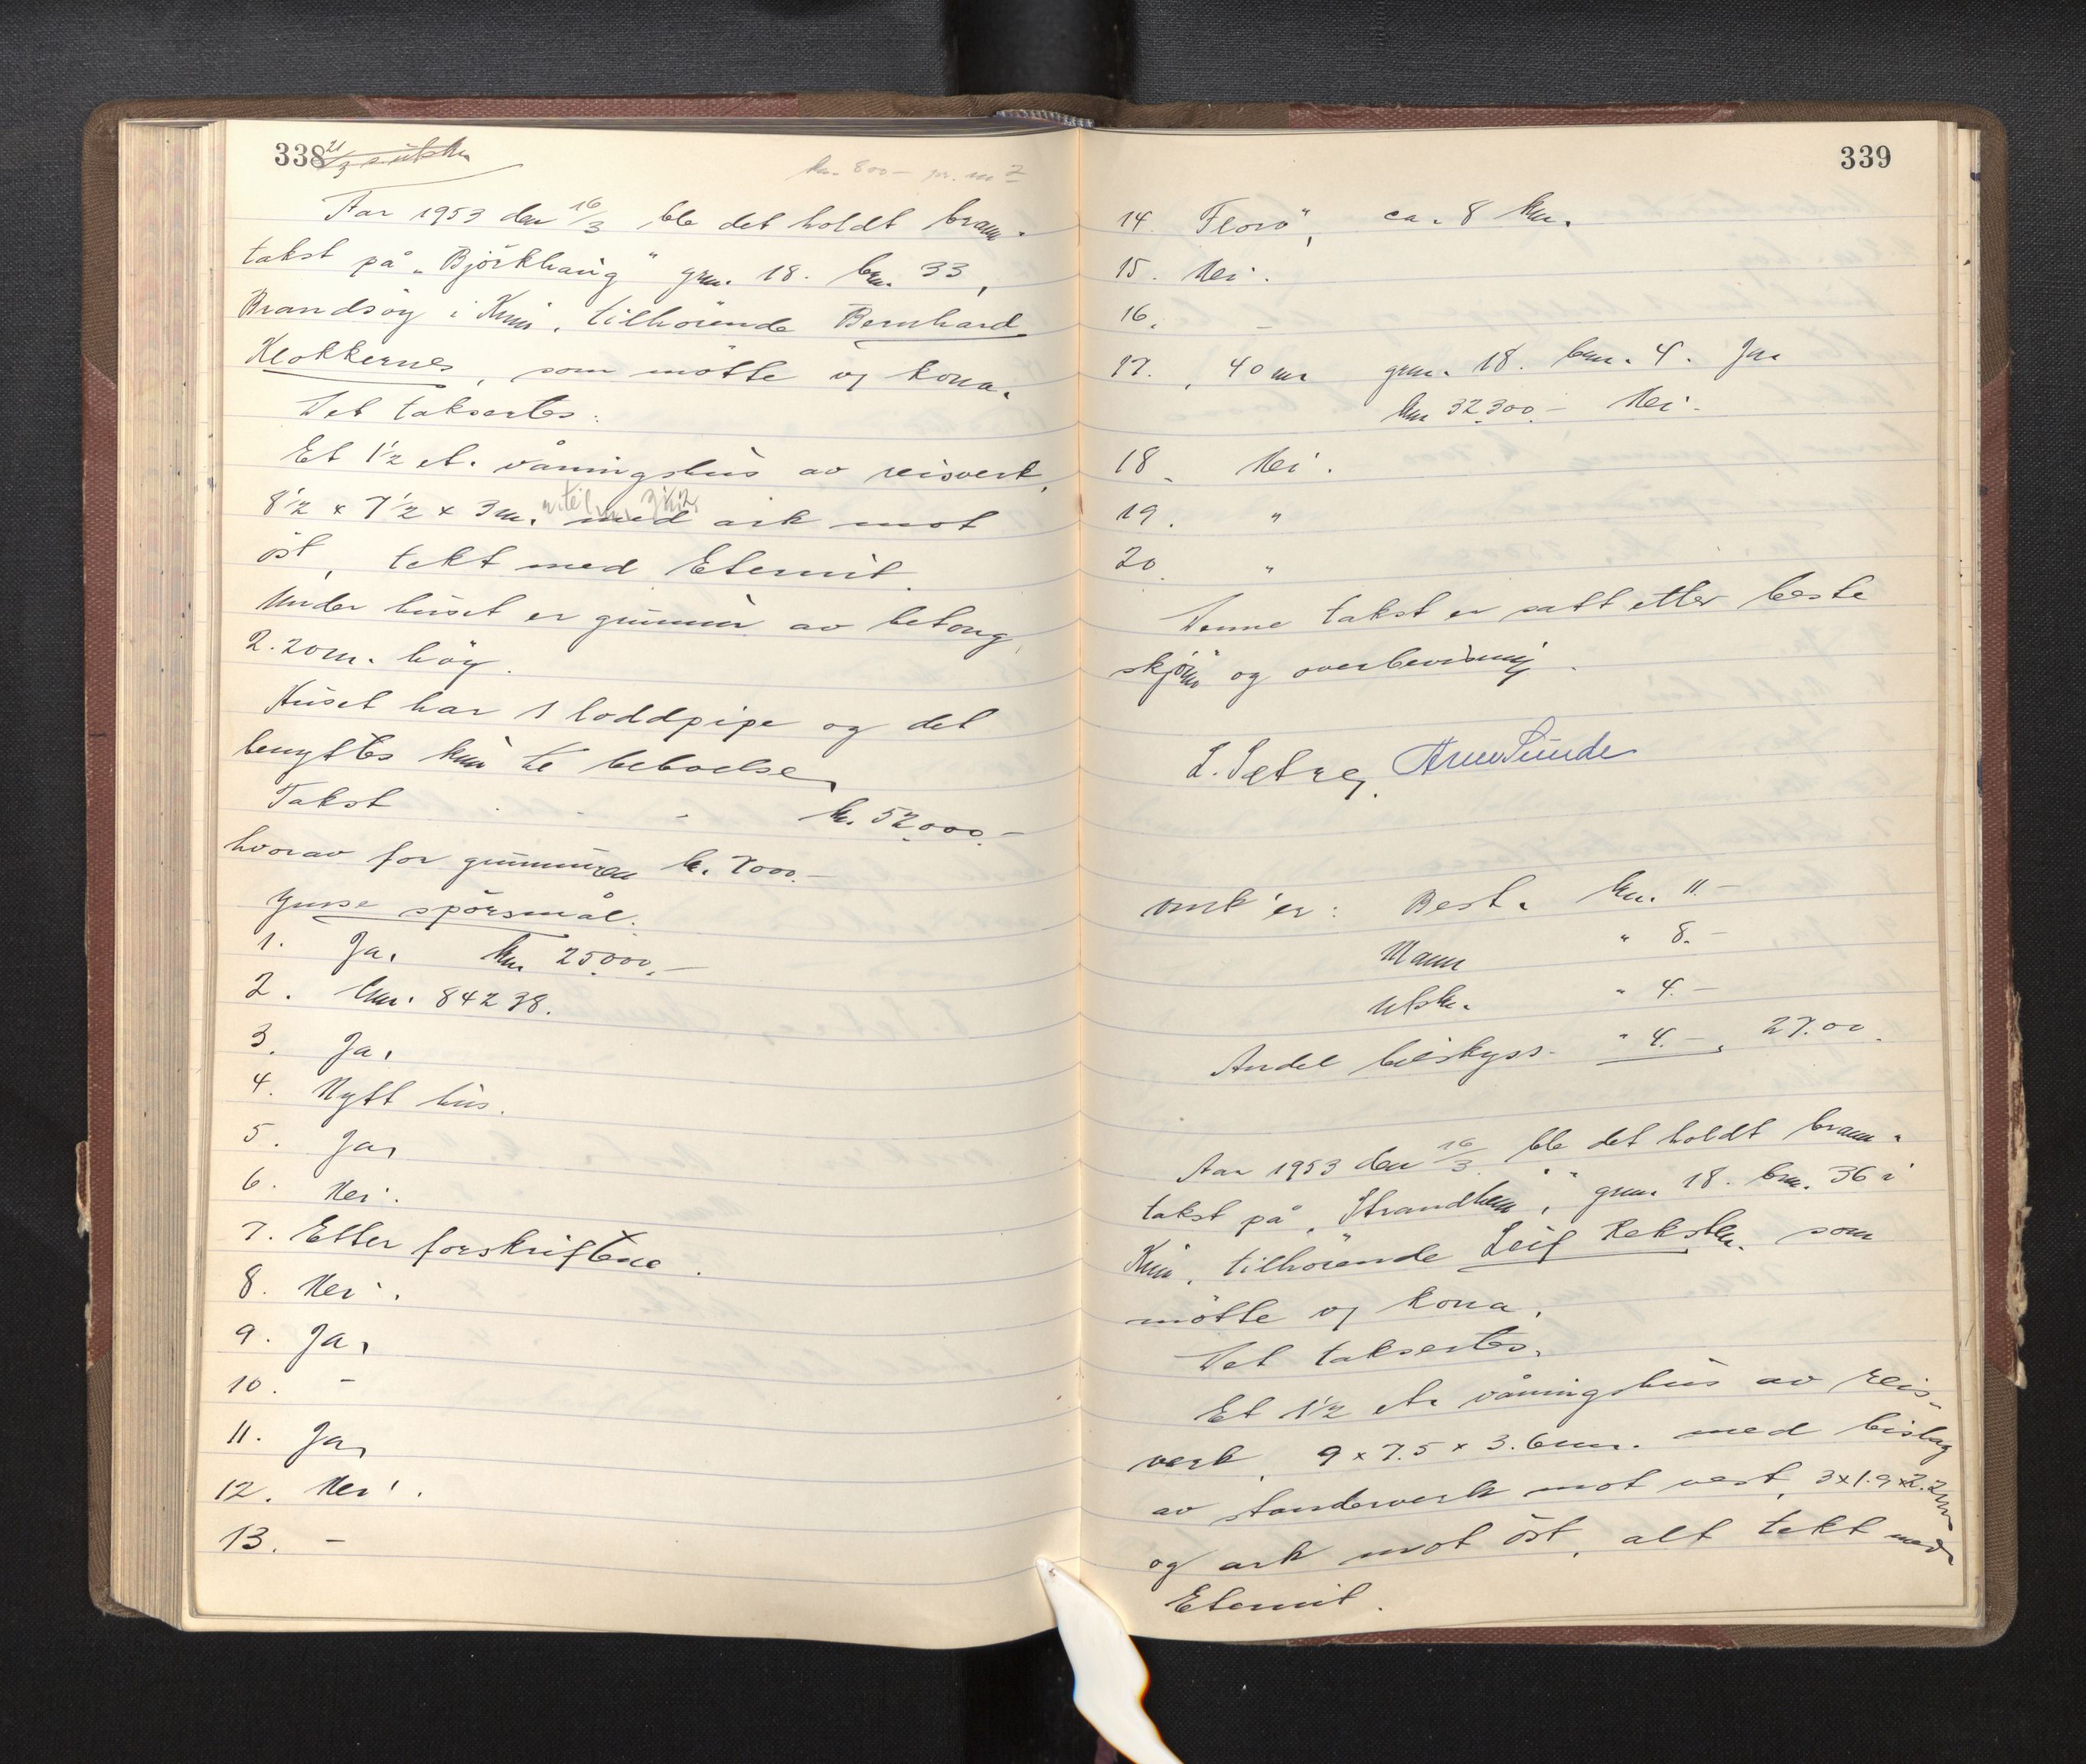 338
21/3 utskr.
kr. 800 - pr. m2
Aar 1953 den 16/3 ble det holdt brann-
takst på "Björkhaug" gnr. 18. bnr. 33,
Brandsöy i Kinn, tilhörende Bernhard
Klokkernes, som mötte og kona.
Det taksertes:
Et 1 1/2 et. våningshus av reisverk,
8 1/2 x 7 1/2 x 3 m. med ark mot
öst, tekt med Eternit.
Under huset er grunnur av betong,
2.20 m. höy.
Huset har 1 loddpipe og det
benyttes kun til beboelse.
Takst kr. 52.000.-
hvorav for grunnuren kr. 7000.-
Ymse spörsmål.
1. Ja, kr. 25.000.-
2. bnr. 84238.
3. Ja,
4. Nytt hus.
5. Ja,
6. Nei.
7. Etter forskriftene.
8. Nei.
9. Ja,
10. -
11. Ja,
12. Nei.
13. -
339
14. Florö, ca. 8 km.
15. Nei.
16. -
17. 40 m gnr. 18. bnr. 4. Ja
kr 32.300.- Nei.
18. Nei.
19. "
20. "
Denne takst er satt etter beste
skjönn og overbevisning.
L. Sætre, Arne Sunde
omk'er: Best. kr. 11.-
Mann " 8.-
Utskr. " 4.-
Andel bilskyss " 4.-, 27.00.
Aar 1953 den 16/3 ble det holdt brann-
takst på "Strandheim", gnr. 18. bnr. 36 i
Kinn, tilhörende Leif Reksten, som
mötte og kona.
Det taksertes.
Et 1 1/2 et. våningshus av reis-
verk, 9 x 7.5 x 3.6 m. med bislag
av standerverk mot vest, 3x1.9x2.2m
og ark mot öst, alt tekt med
Eternit.